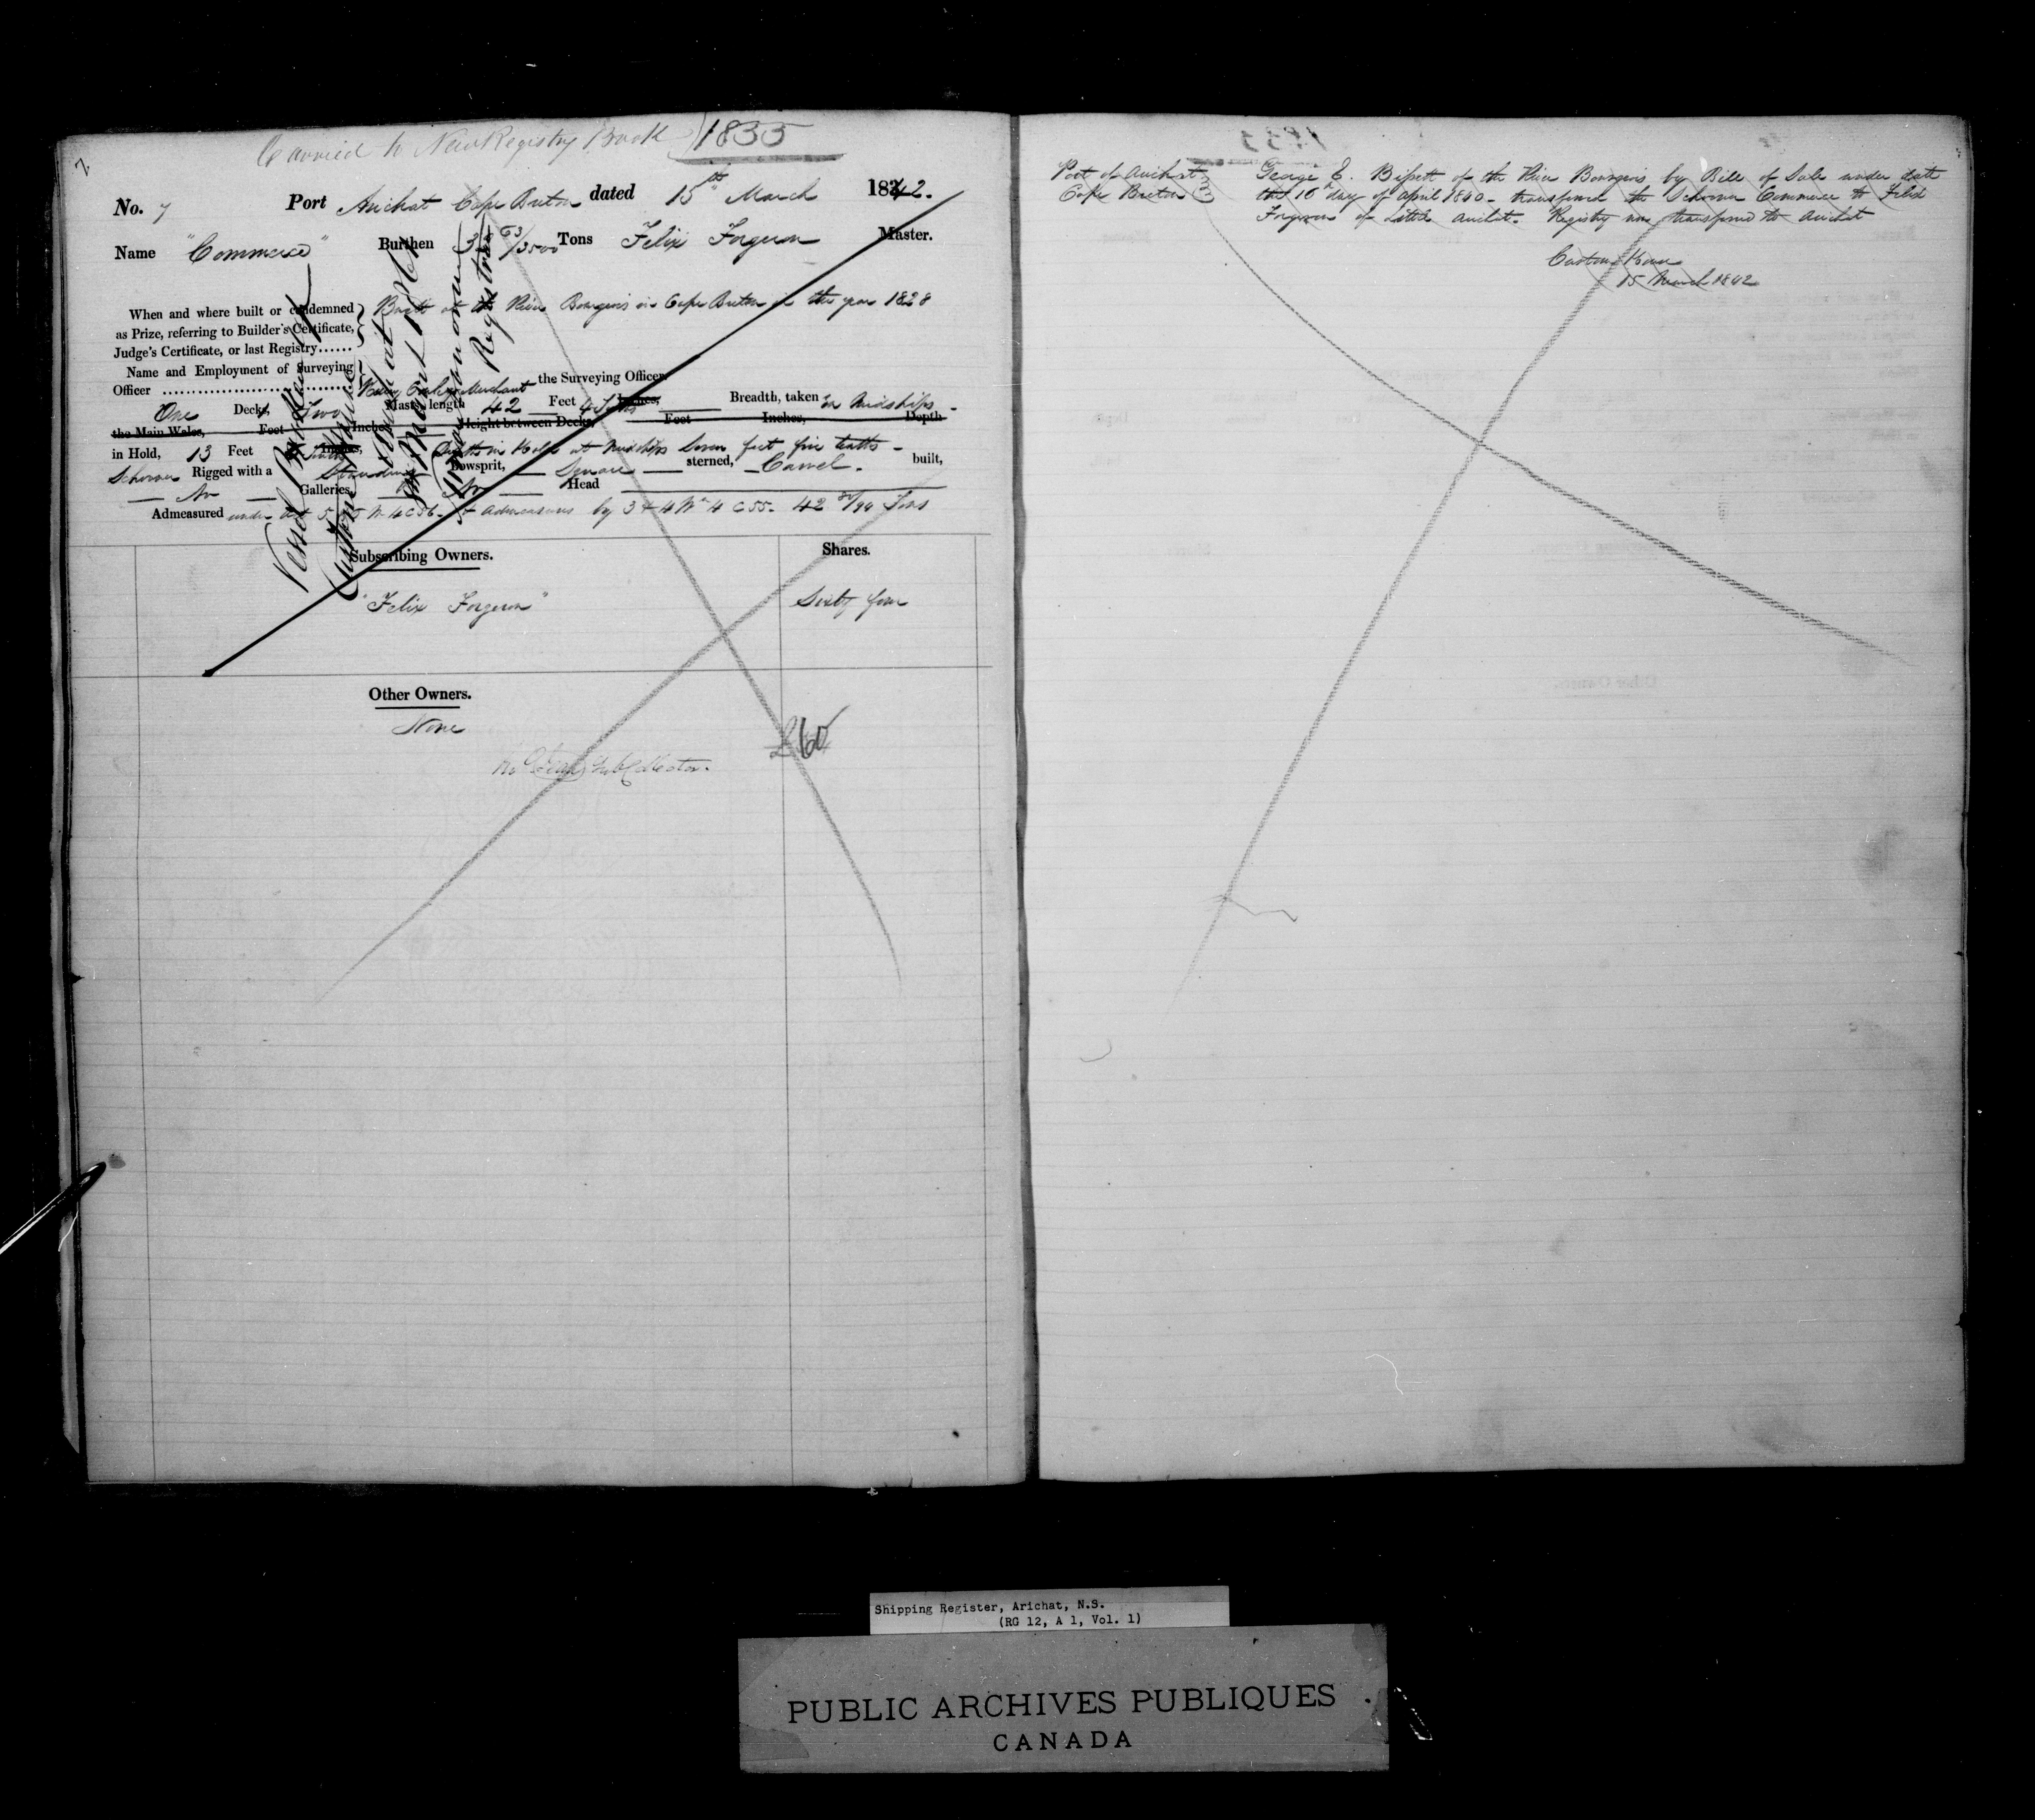 Carried to New Registry Book 1835
2
No. 7 Port Arichat Cape Breton dated 15th March 1842.
Name "Commerce" Burthen 53/3500 Tons Felix Forgeron Master.
When and where built or condemned as Prize, referring to Builder's Certificate, Judge's Certificate, or last Registry......
Built at the River Bourgeois in Cape Breton in the year 1828
Name and Employment of Surveying Officer ........ Merchant the Surveying Officer.
One Deck, Two Masts, length 42 Feet 4 Tenths Inches, Breadth, taken in Midships -
the Main Wales, Feet Inches, Height between Decks, Feet Inches, Depth
in Hold, 13 Feet Tenths Inches, Depth in Hold at Midships Seven feet five tenths -
Schooner Rigged with a Standing Bowsprit, Square sterned, Carvel built,
No Galleries, No Head
Admeasured under Act 5 & 6 W 4 C 56. admeasures by 3 & 4 Wm 4 C 55. 42 /94 Tons
Subscribing Owners. Shares.
"Felix Forgeron" Sixty four
Other Owners.
None
Sub Collector.
£60
Vessel
Custom House Arichat
Registrar
Port of Arichat
Cape Breton
George E. Bissett of the River Bourgeois by Bill of Sale under date
the 16th day of April 1840 - transferred the Schooner Commerce to Felix
Forgeron of Little Arichat. Registry now transferred to Arichat
Custom House
15 March 1842
Shipping Register, Arichat, N.S.
(RG 12, A 1, Vol. 1)
PUBLIC ARCHIVES PUBLIQUES
CANADA